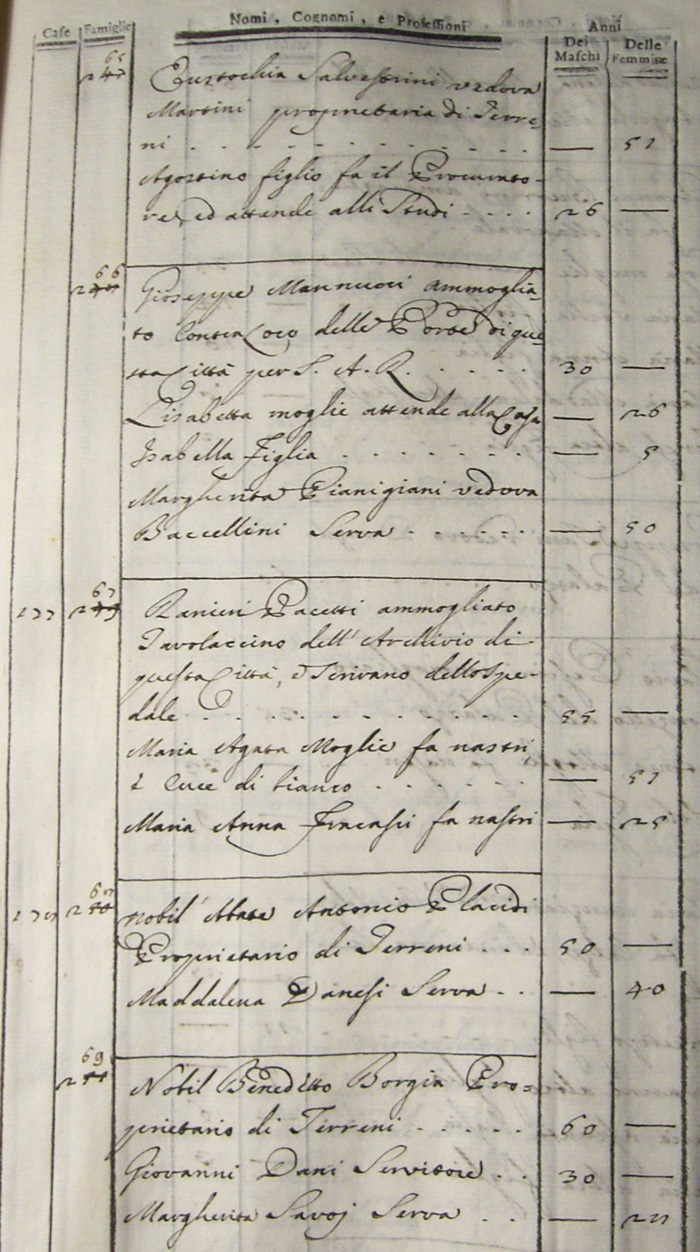 Case Famiglie Nomi, Cognomi, e Professioni Anni
Dei Maschi Delle Femmine
65
Eustochia Salvestrini vedova
Martini proprietaria di Terre=
ni . . . . . . . . — 51
Agostino figlio fa il Procurato=
re, ed attende alli Studi . . . . 26 —
66
Giuseppe Mannucci ammoglia=
to delle Porte di que
sta Città per S. A. R. . . . . . 30 —
Lisabetta moglie attende alla Casa — 26
Isabella Figlia . . . . . . . — 5
Margherita Pianigiani vedova
Baccellini Serva . . . . . — 50
177 67
Ranieri Pacetti ammogliato
Tavolaccino dell' Archivio di
questa Città, e Scrivano dello Spe=
dale . . . . . . . . . 55 —
Maria Agata Moglie fa nastri,
e cuce di bianco . . . . . . — 51
Maria Anna fa nastri — 25
68
Nobil' Abate Antonio Placidi
Proprietario di Terreni . . . 50 —
Maddalena Danesi Serva . . — 40
69
Nobil Benedetto Borgia Pro=
prietario di Terreni . . . . . 60 —
Giovanni Dani Servitore . . 30 —
Margherita Savoj Serva . . —